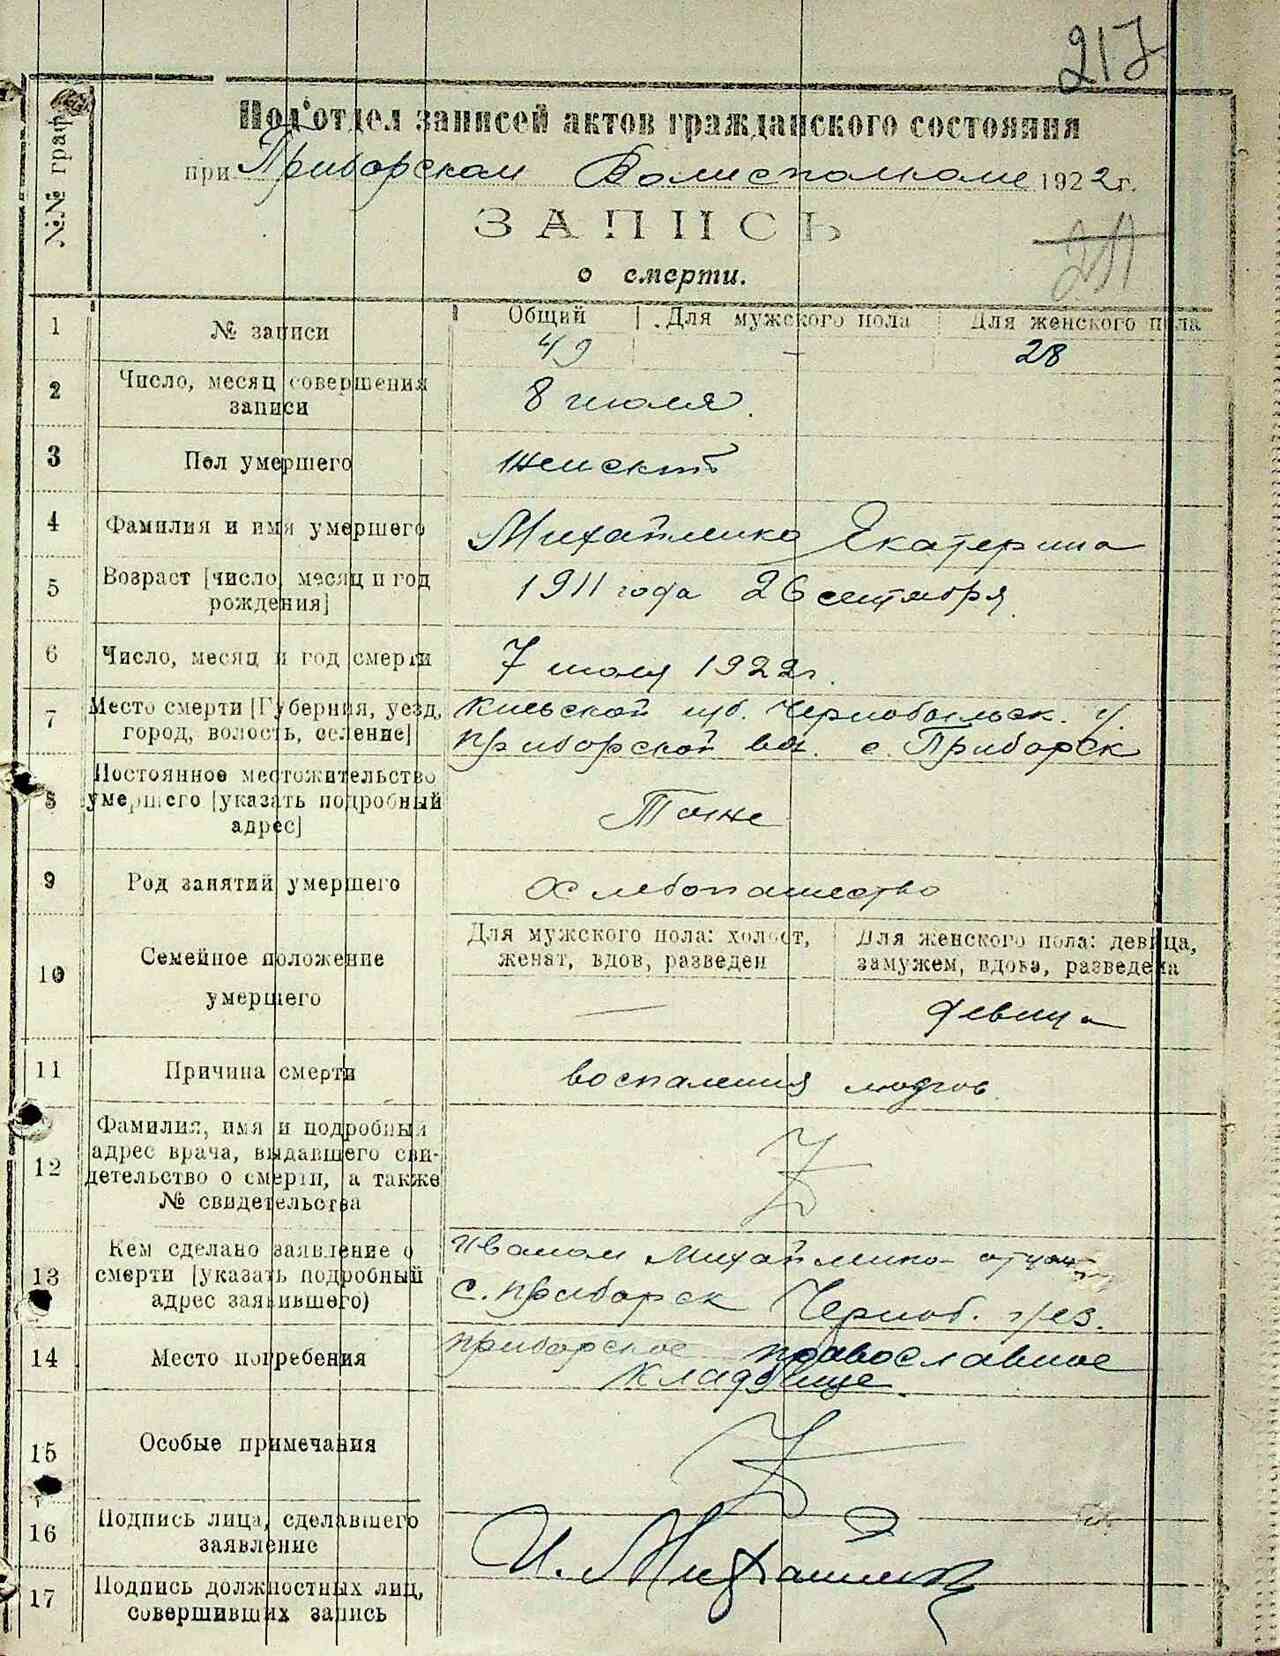 217
Под'отдел записей актов гражданского состояния
при Приборском Волисполкоме 1922 г.
ЗАПИСЬ
о смерти.
№№ граф
1 № записи Общий Для мужского пола Для женского пола
49 - 28
2 Число, месяц совершения записи 8 июля.
3 Пол умершего Женскій
4 Фамилия и имя умершего Михайленко Екатерина
5 Возраст [число, месяц и год рождения] 1911 года 26 сентября
6 Число, месяц и год смерти 7 июля 1922 г.
7 Место смерти [Губерния, уезд, город, волость, селение] Киевской губ. Чернобыльск. у.
Приборской вол. с. Приборск
8 Постоянное местожительство умершего [указать подробный адрес] Тоже
9 Род занятий умершего Хлебопашество
10 Семейное положение умершего
Для мужского пола: холост, женат, вдов, разведен
Для женского пола: девица, замужем, вдова, разведена
— девица
11 Причина смерти воспаления
12 Фамилия, имя и подробный адрес врача, выдавшего сви-
детельство о смерти, а также № свидетельства
13 Кем сделано заявление о смерти [указать подробный адрес заявившего) Иваном Михайленко - отцом
с. Приборск Черноб. уез.
14 Место погребения Приборское православное
кладбище
15 Особые примечания
16 Подпись лица, сделавшего заявление И. Михайленко
17 Подпись должностных лиц, совершивших запись